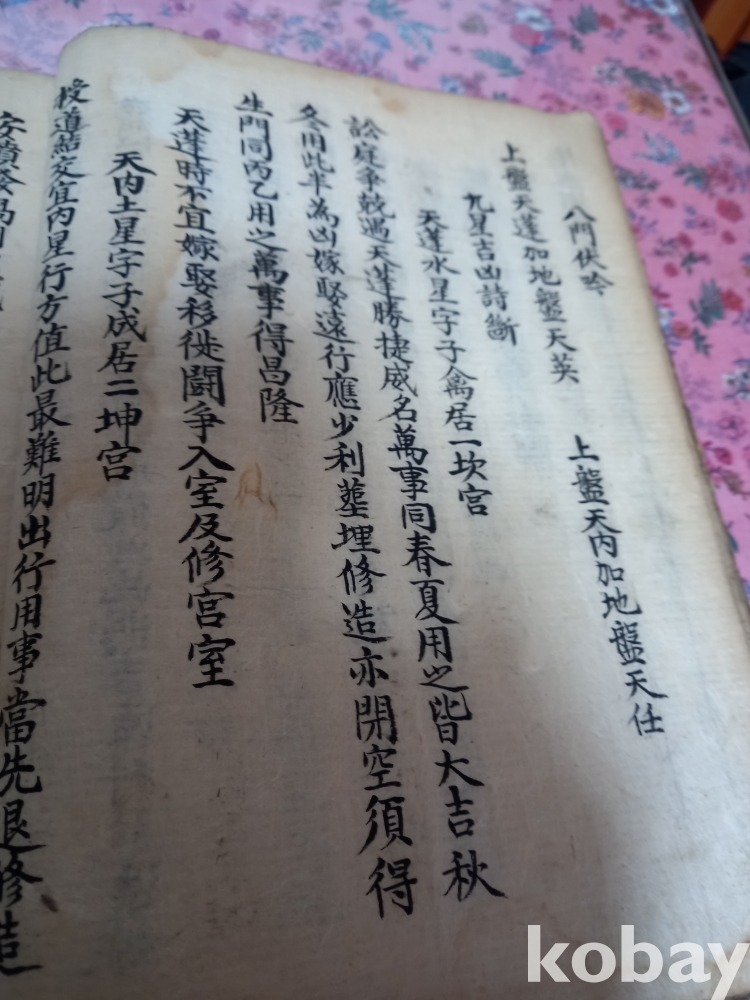 八門伏吟
上盤天蓬加地盤天英　上盤天内加地盤天任
九星吉凶詩断
天蓬水星字子禽居一坎宫
訟庭争兢遇天蓬勝捷威名萬事同春夏用之皆大吉秋
冬用此半為凶嫁娶遠行應少利塟埋修造亦閑空須得
生門同丙乙用之萬事得昌隆
天蓬時不宜嫁娶移徙鬪争入室及修宫室
天内土星字子成居二坤宫
授道結交宜内星行方值此最難明出行用事當先退修造
安墳發
kobay